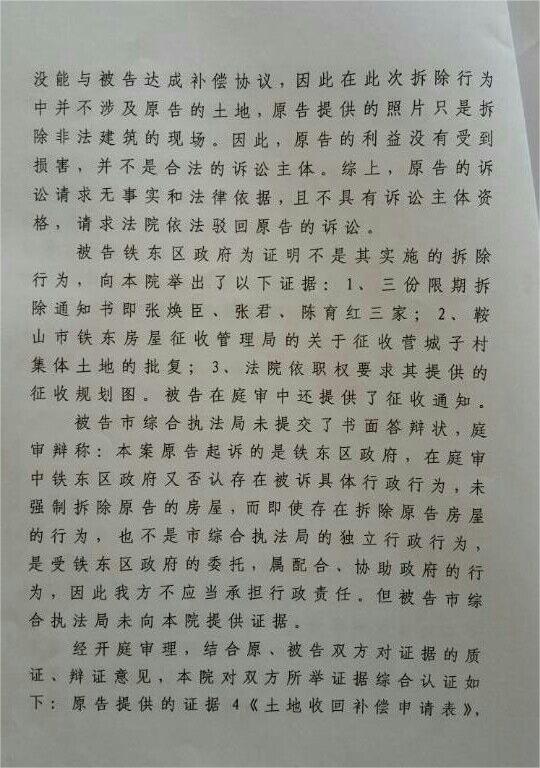 没能与被告达成补偿协议，因此在此次拆除行为
中并不涉及原告的土地，原告提供的照片只是拆
除非法建筑的现场。因此，原告的利益没有受到
损害，并不是合法的诉讼主体。综上，原告的诉
讼请求无事实和法律依据，且不具有诉讼主体资
格，请求法院依法驳回原告的诉讼。
被告铁东区政府为证明不是其实施的拆除
行为，向本院举出了以下证据：1、三份限期拆
除通知书即张焕臣、张君、陈育红三家；2、鞍
山市铁东房屋征收管理局的关于征收营城子村
集体土地的批复；3、法院依职权要求其提供的
征收规划图。被告在庭审中还提供了征收通知。
被告市综合执法局未提交了书面答辩状，庭
审辩称：本案原告起诉的是铁东区政府，在庭审
中铁东区政府又否认存在被诉具体行政行为，未
强制拆除原告的房屋，而即使存在拆除原告房屋
的行为，也不是市综合执法局的独立行政行为，
是受铁东区政府的委托，属配合、协助政府的行
为，因此我方不应当承担行政责任。但被告市综
合执法局未向本院提供证据。
经开庭审理，结合原、被告双方对证据的质
证、辩证意见，本院对双方所举证据综合认证如
下：原告提供的证据 4《土地收回补偿申请表》，